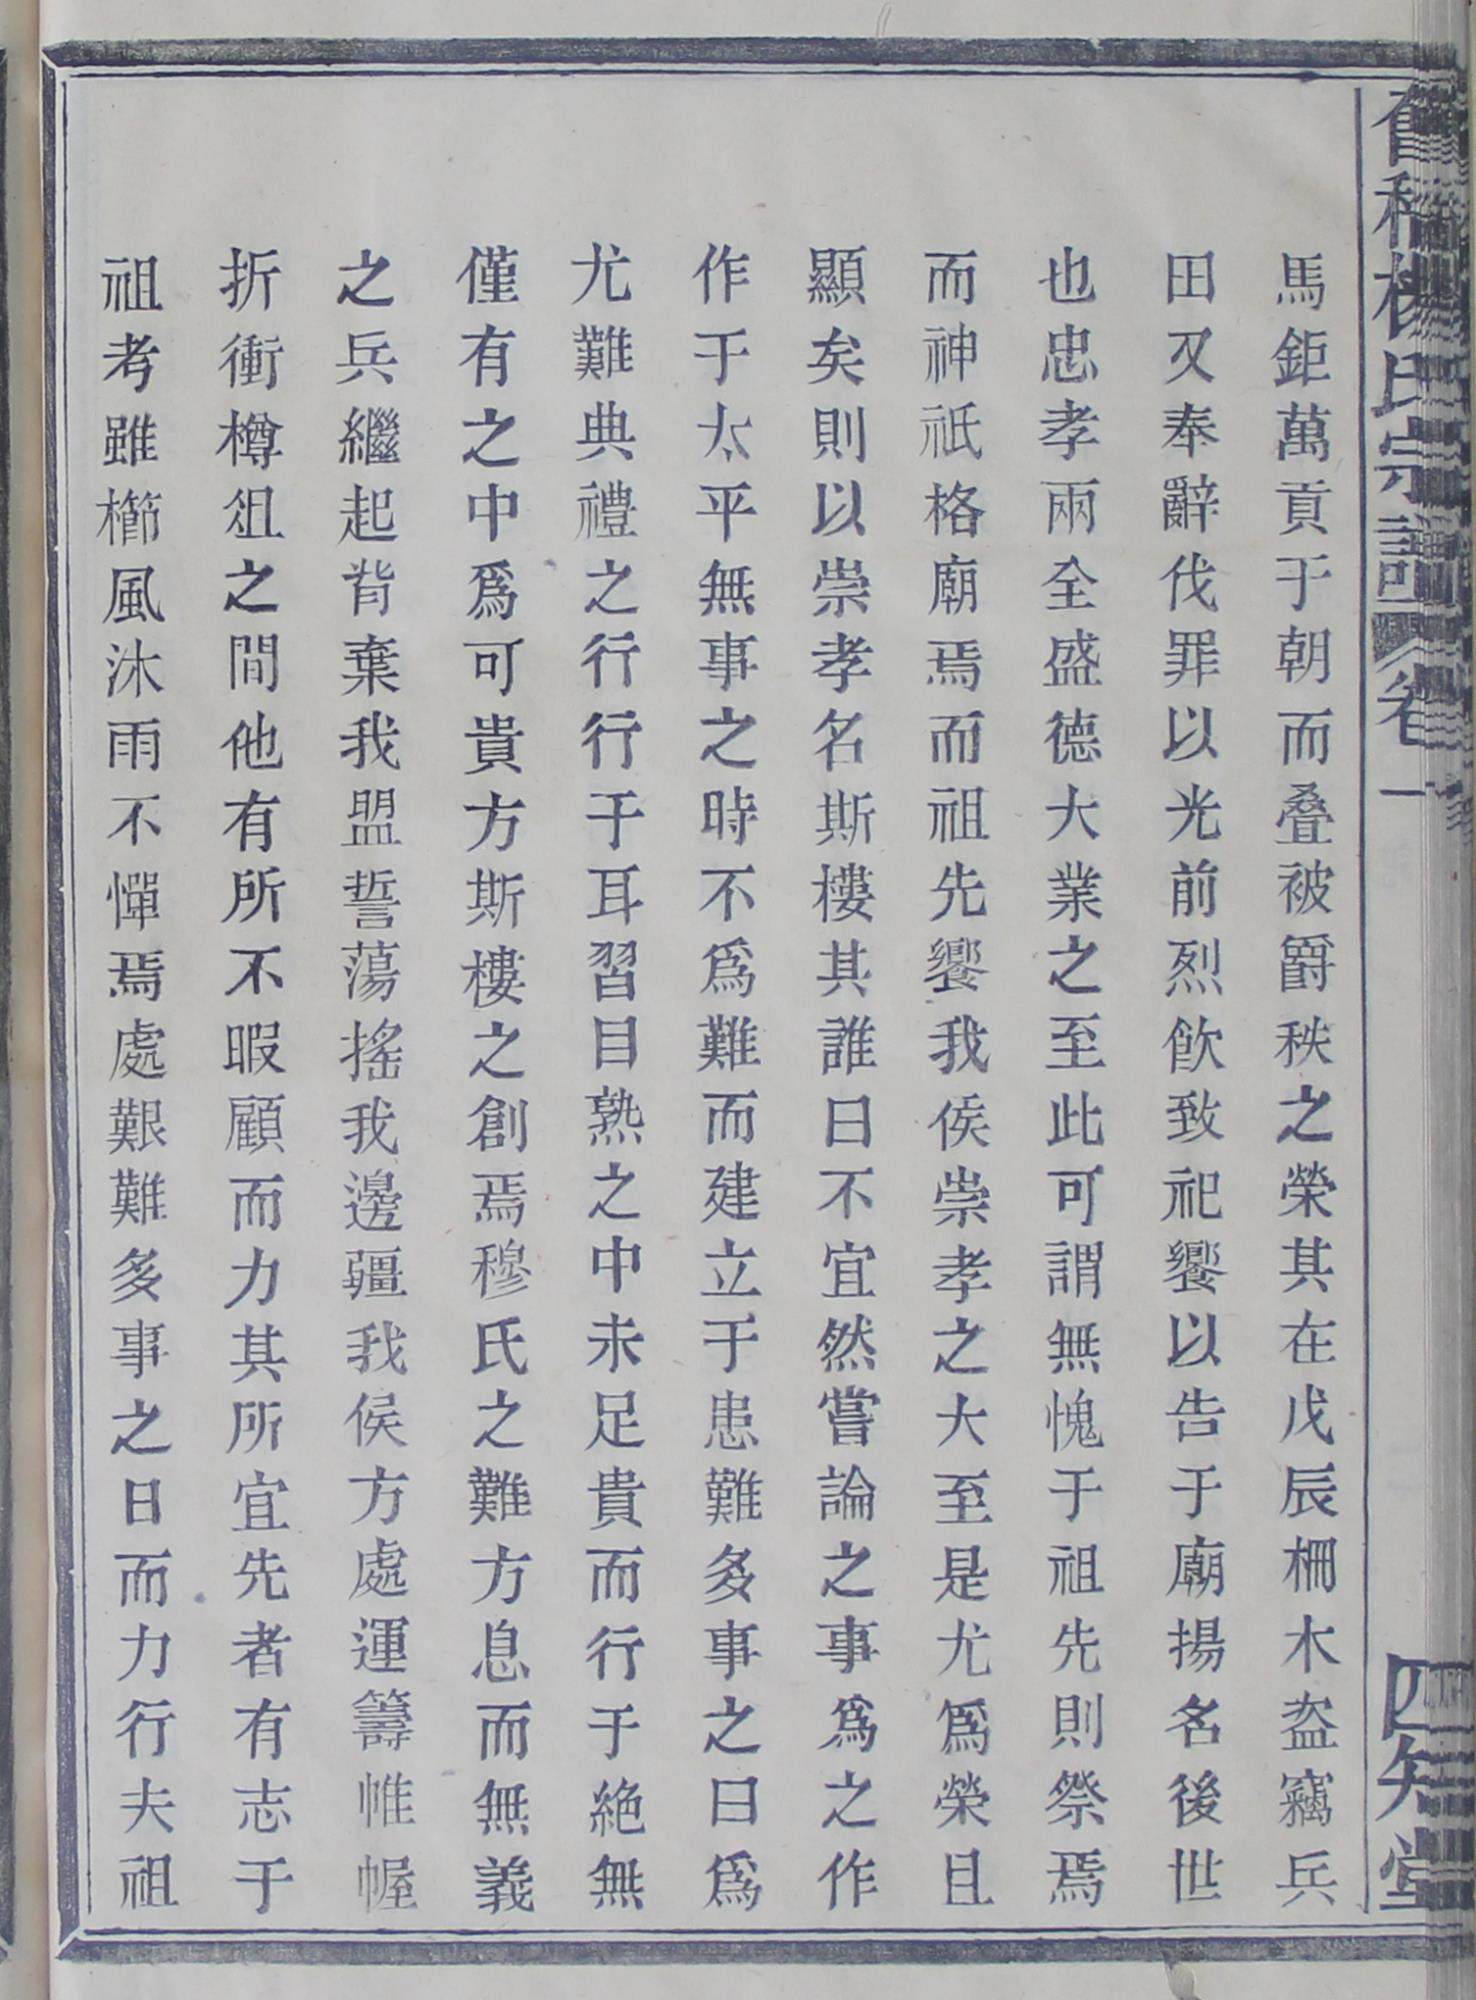 馬鉅萬貢于朝而疊被爵秩之榮其在戊辰柵木盔竊兵
田又奉辭伐罪以光前烈飲致祀饗以告于廟揚名後世
也忠孝兩全盛德大業之至此可謂無愧于祖先則祭焉
而神祇格廟焉而祖先饗我侯崇孝之大至是尤爲榮且
顯矣則以崇孝名斯樓其誰曰不宜然嘗論之事爲之作
作于太平無事之時不爲難而建立于患難多事之日爲
尤難典禮之行行于耳習目熟之中未足貴而行于絶無
僅有之中爲可貴方斯樓之創焉穆氏之難方息而無義
之兵繼起背棄我盟誓蕩搖我邊疆我侯方處運籌帷幄
折衝樽俎之間他有所不暇顧而力其所宜先者有志于
祖考雖櫛風沐雨不憚焉處艱難多事之日而力行夫祖
楊氏宗譜 卷一
四知堂